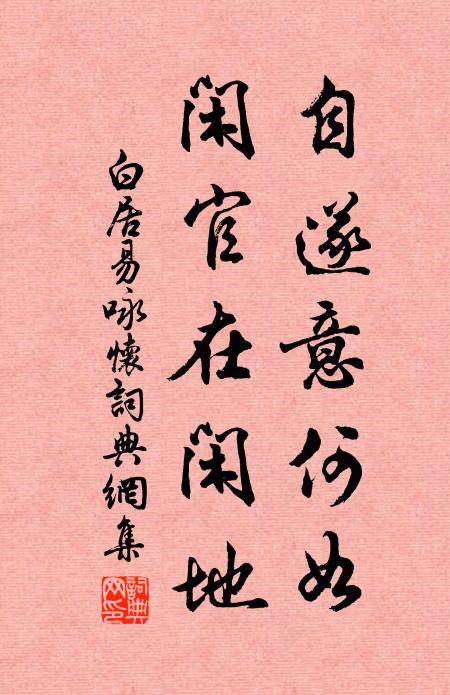 自遂意何如
闲官在闲地
白居易咏懷詞典網集
詞典網印